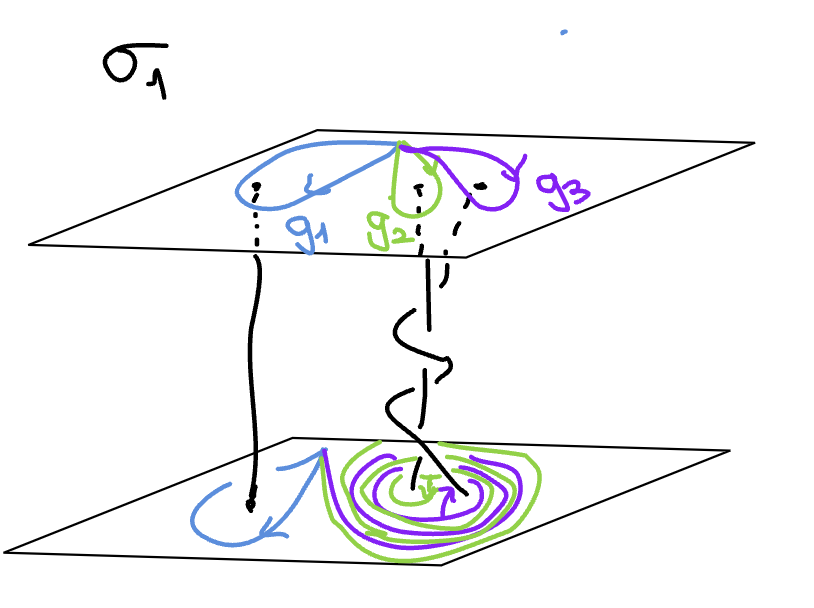 σ1
g1
g2
g3